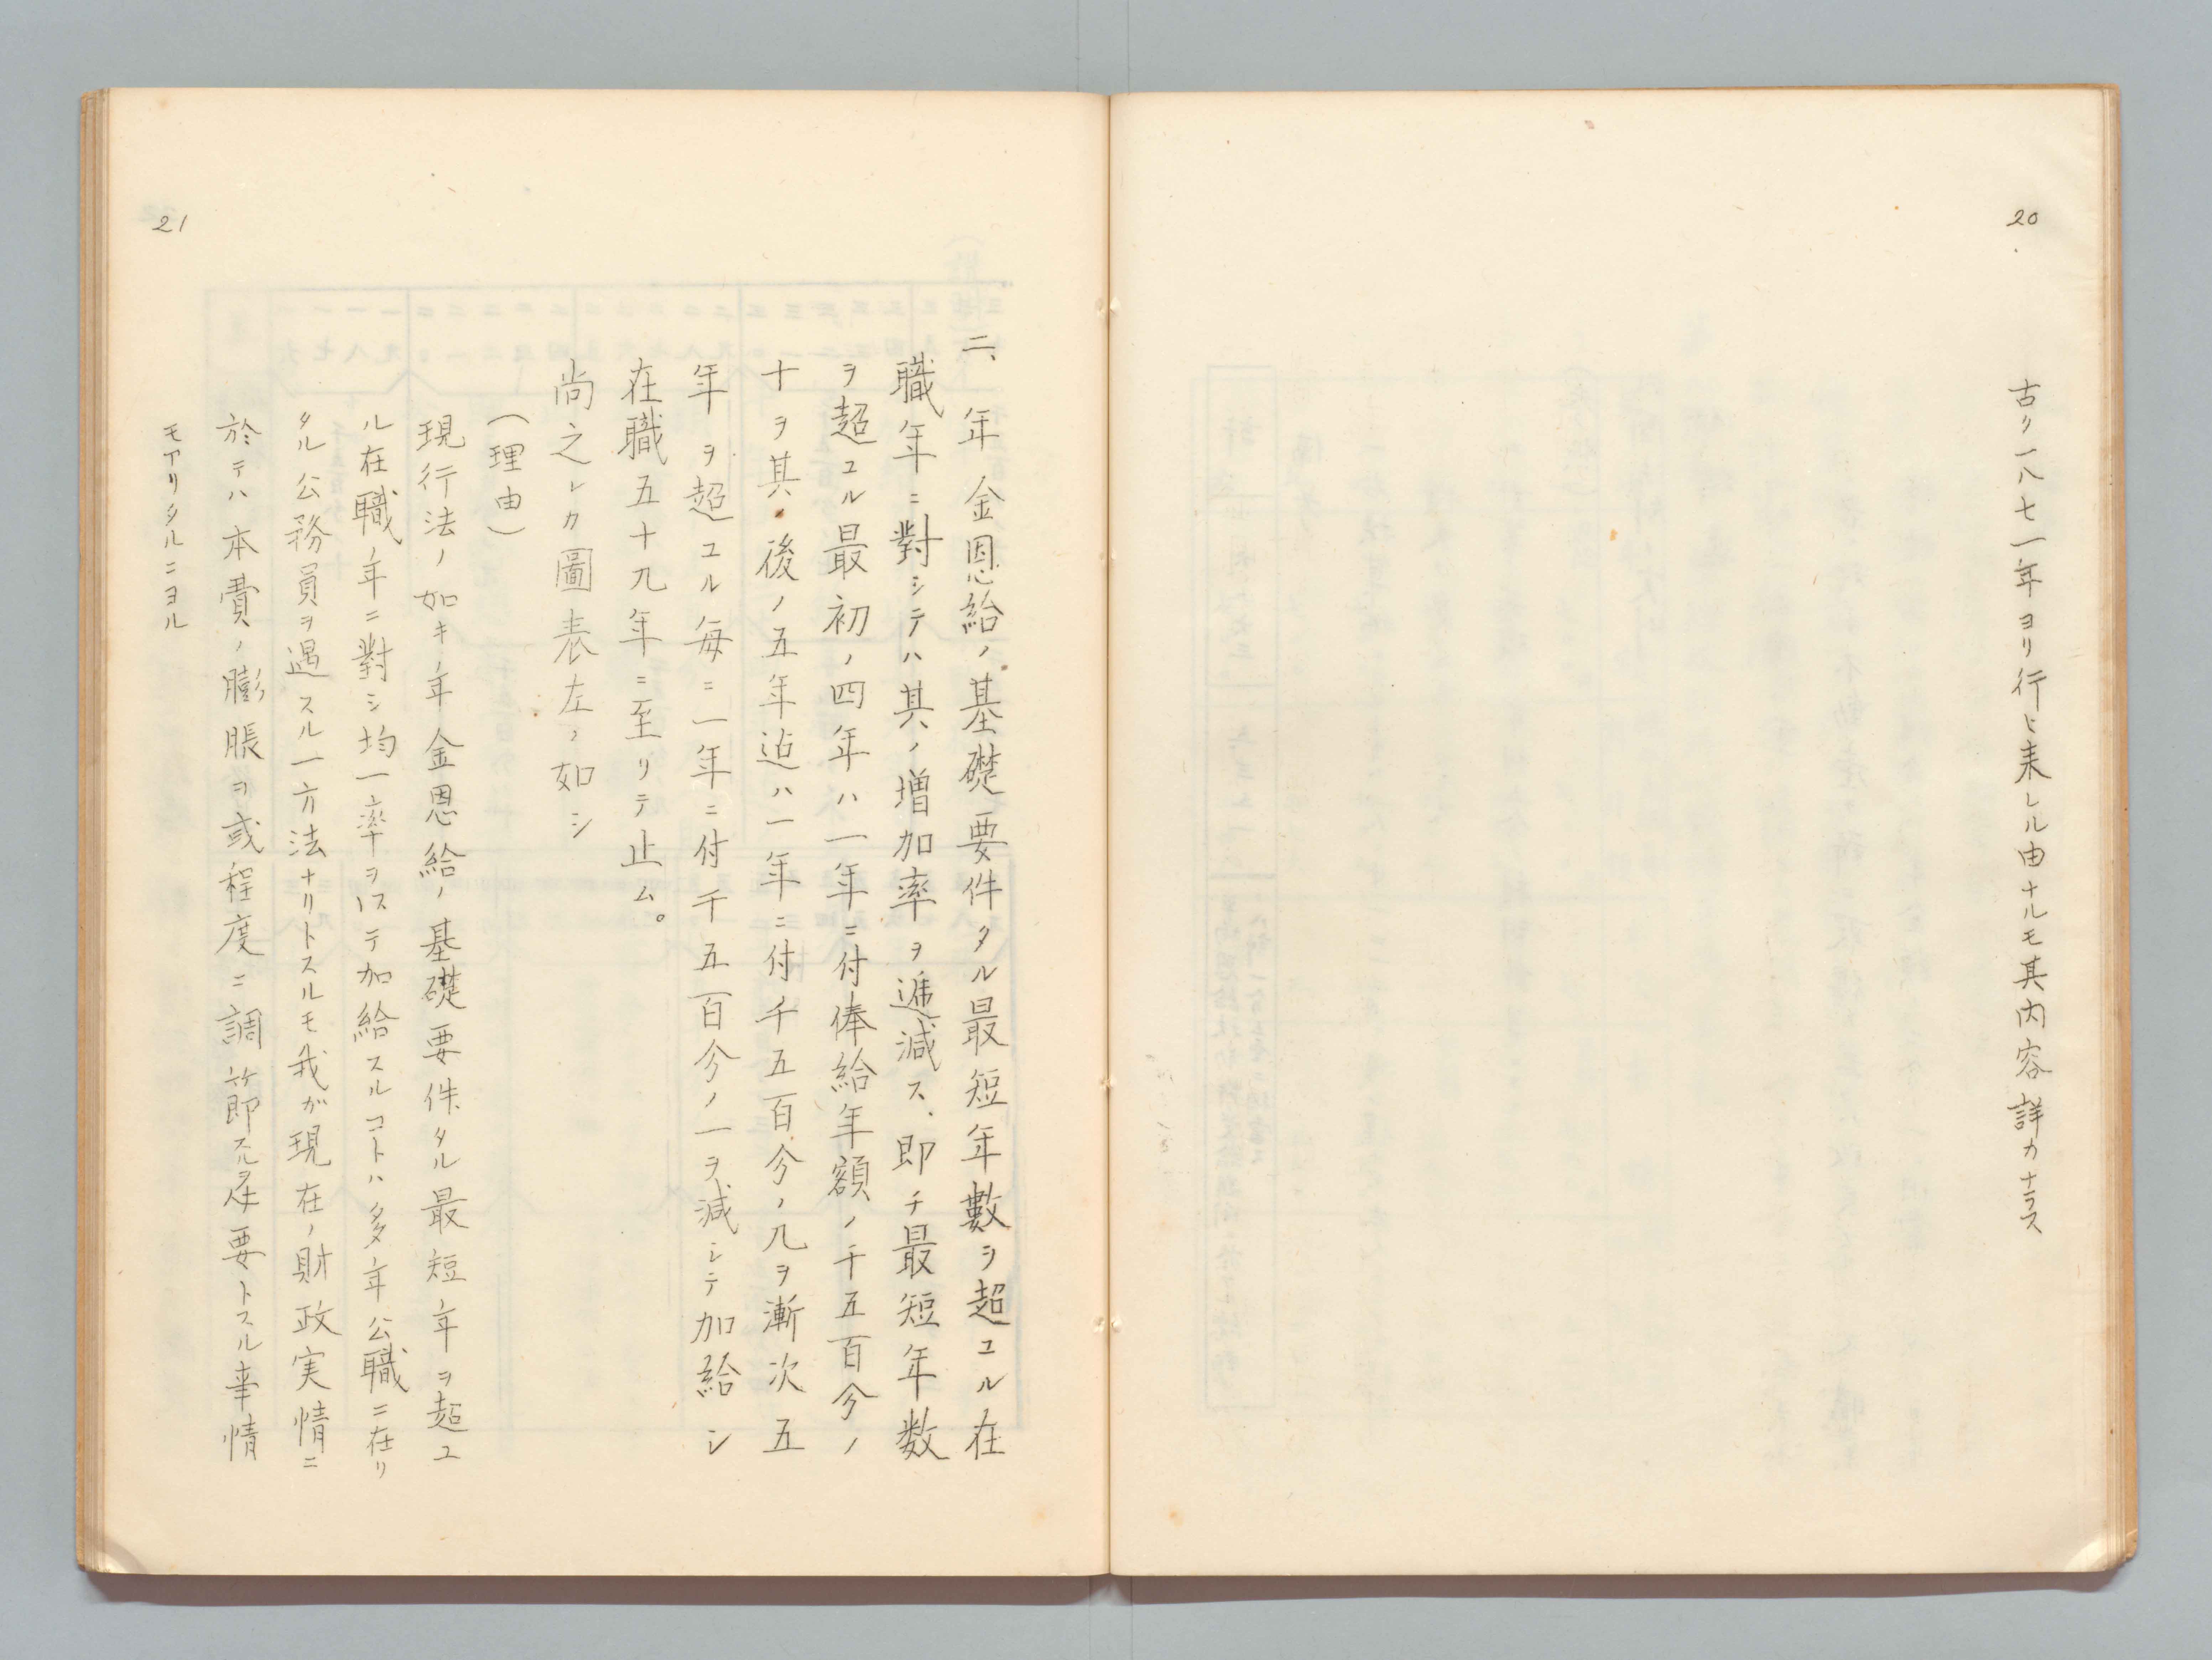 20
古ク一八七一年ヨリ行ヒ来レル由ナルモ其内容詳カナラス
21
二、年金恩給ノ基礎要件タル最短年數ヲ超ユル在
職年ニ對シテハ其ノ増加率ヲ逓減ス、即チ最短年数
ヲ超ユル最初ノ四年ハ一年ニ付俸給年額ノ千五百分ノ
十ヲ其ノ後ノ五年迠ハ一年ニ付千五百分ノ九ヲ漸次五
年ヲ超ユル毎ニ一年ニ付千五百分ノ一ヲ減シテ加給シ
在職五十九年ニ至リテ止ム。
尚之レカ圖表左ノ如シ
(理由)
現行法ノ如キ年金恩給ノ基礎要件タル最短年ヲ超ユ
ル在職年ニ對シ均一率ヲ以テ加給スルコトハ多年公職ニ在リ
タル公務員ヲ遇スル一方法ナリトスルモ我が現在ノ財政実情ニ
於テハ本費ノ膨脹ヲ或程度ニ調節スル必要トスル事情
モアリタルニヨル